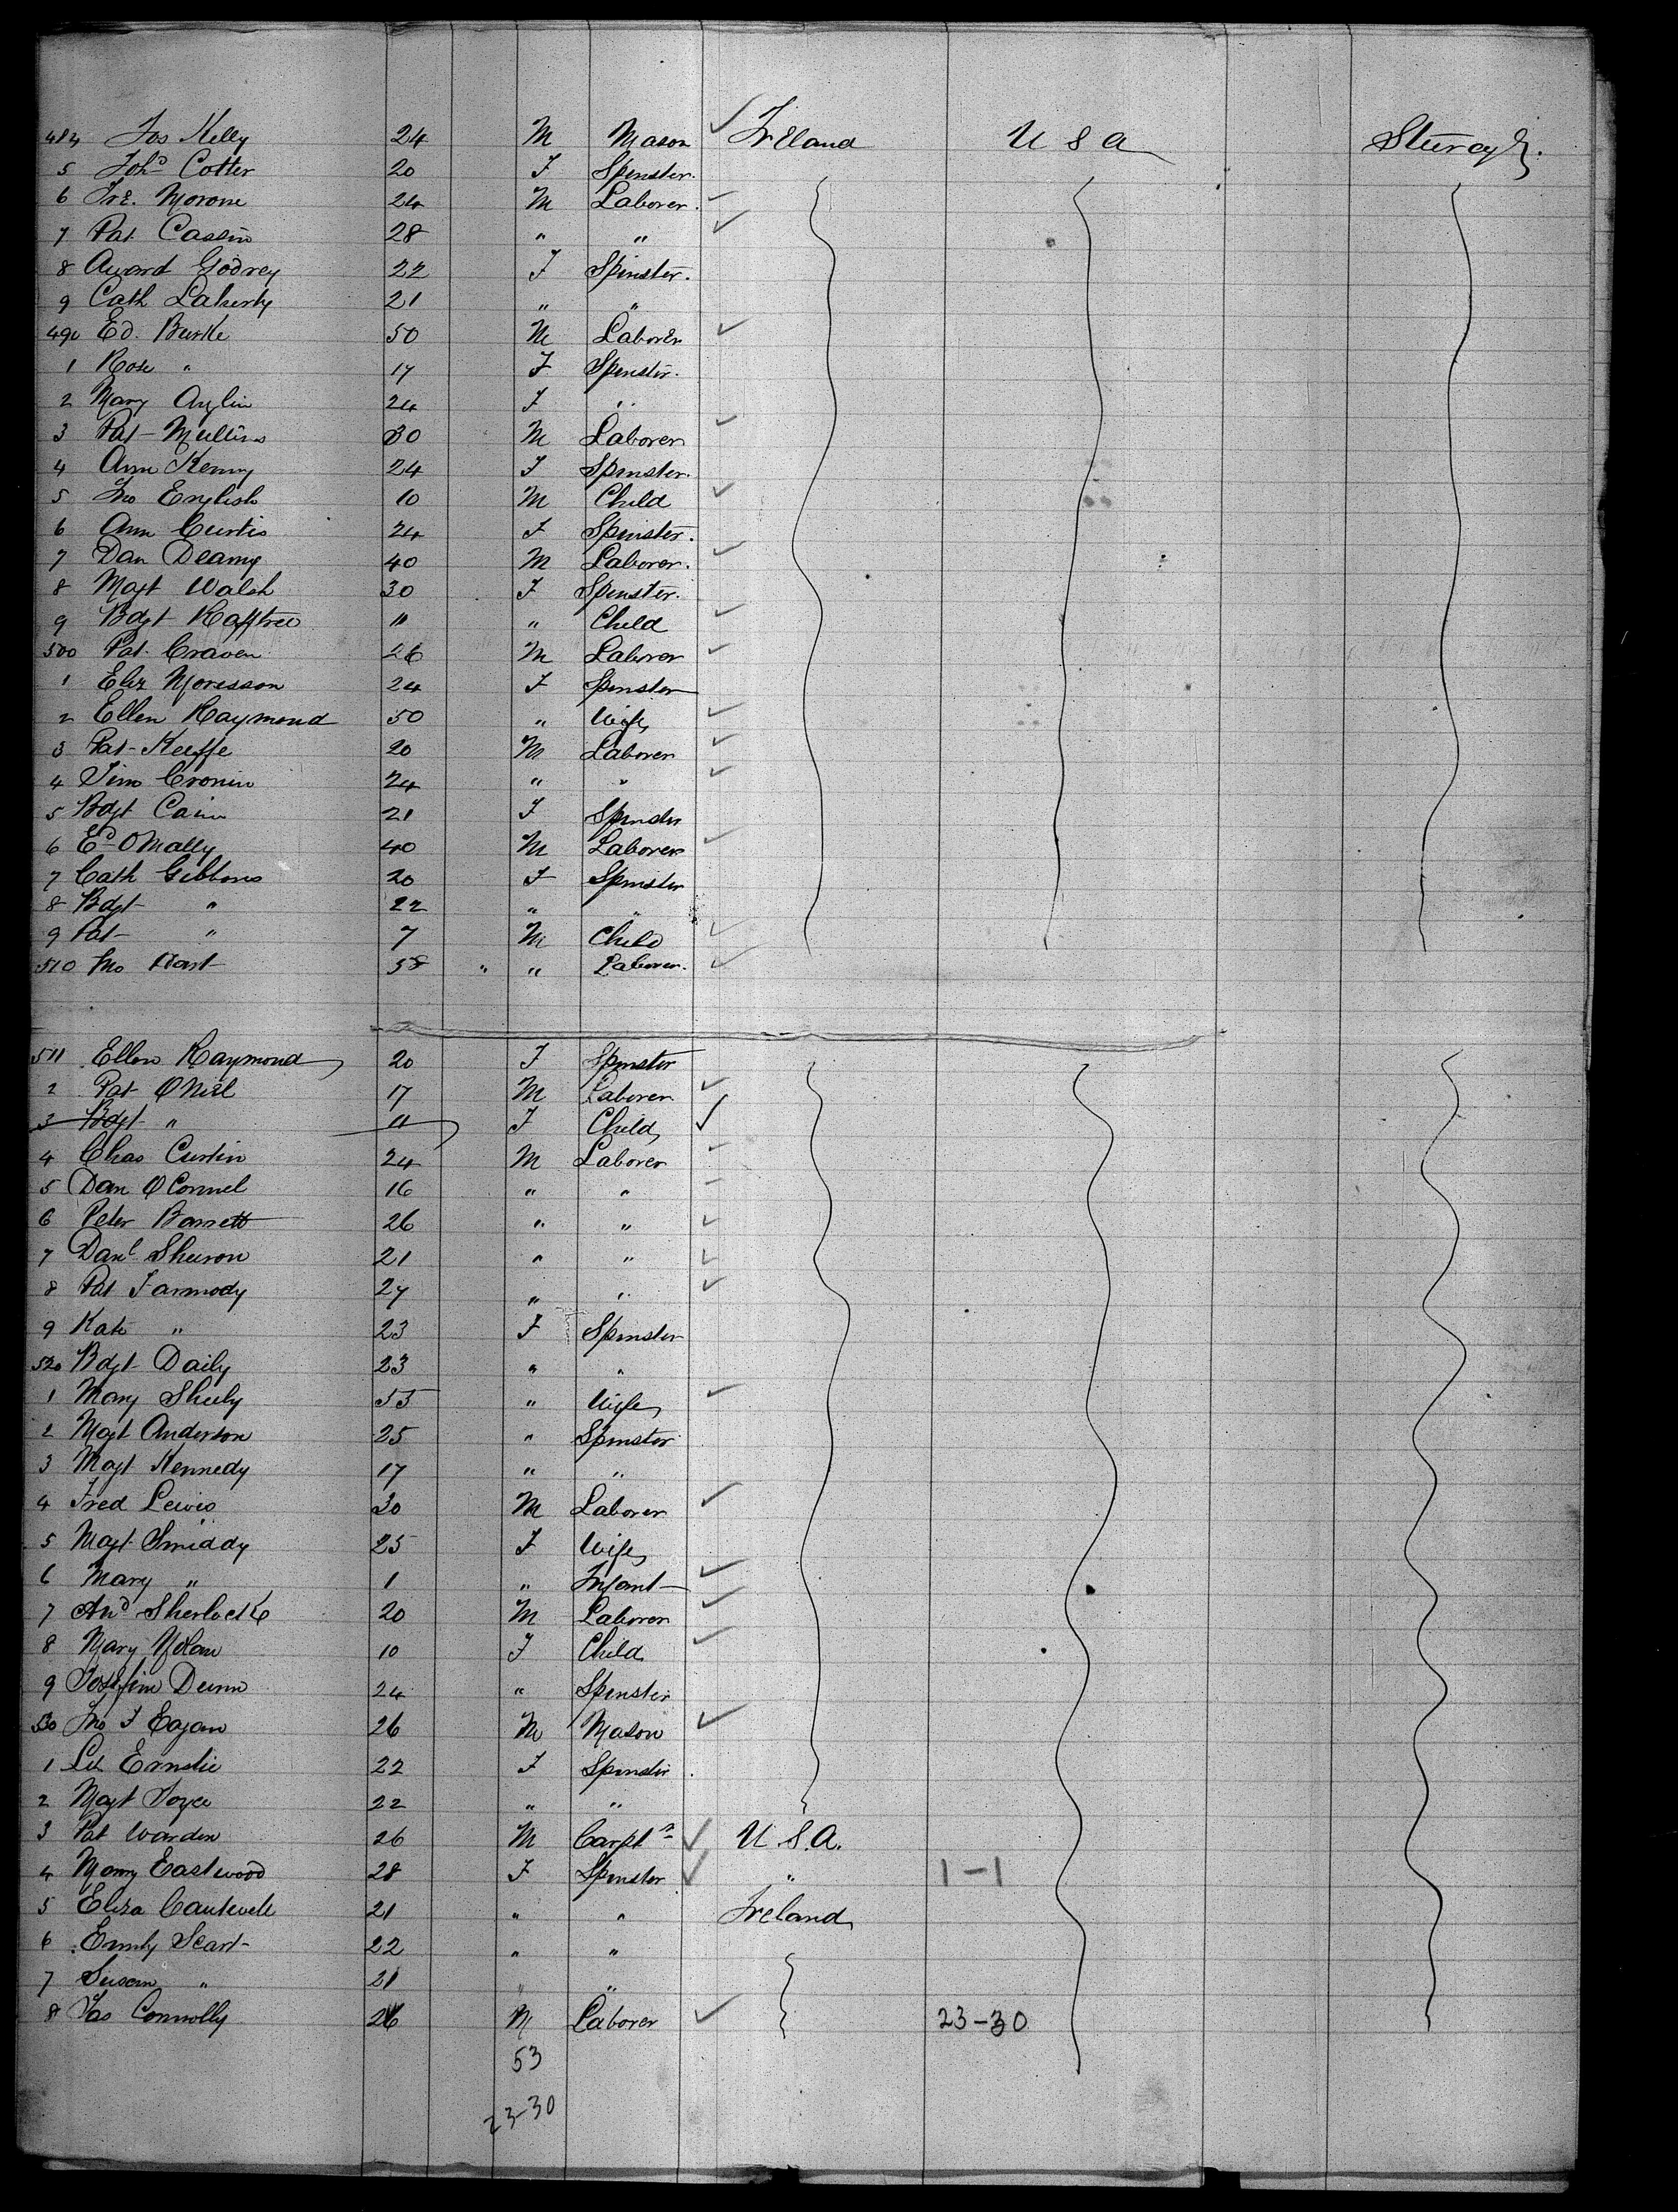 484 Jos Kelly 24 M Mason Ireland U S A
5 Cotter 20 F Spinster.
6 24 M Laborer.
7 Pat Cassin 28 " "
8 Godrey 22 F Spinster.
9 Cath Laherty 21 " "
490 Ed. Burke 50 M Laborer
1 Rose " 17 F Spinster.
2 Mary Anglin 24 F "
3 Pat Mullins 30 M Laborer
4 Ann Kenny 24 F Spinster.
5 Jno English 10 M Child
6 Ann Curtis 24 F Spinster.
7 Dan 40 M Laborer.
8 Magt Walsh 30 F Spinster.
9 Bdgt Rafftree 11 " Child
500 Pat Craven 26 M Laborer
1 Eliz Moresson 24 F Spinster
2 Ellen Raymond 50 " Wife
3 Pat Keeffe 20 M Laborer
4 Tim Cronin 24 " "
5 Bdgt Cain 21 F Spinster
6 Ed OMally 40 M Laborer
7 Cath Gibbons 20 F Spinster
8 Bdgt " 22 " "
9 Pat " 7 M Child
510 Jno 58 " " Laborer.
511 Ellen Raymond 20 F Spinster
2 Pat O'Niel 17 M Laborer
3 Bdgt " 11 F Child
4 Chas Curtin 24 M Laborer
5 Dan O'Connel 16 " "
6 Peter Barrett 26 " "
7 Danl 21 " "
8 Pat 27 " "
9 Kate " 23 F Spinster
520 Bdgt Daily 23 " "
1 Mary Sheehy 55 " Wife
2 Magt Anderson 25 " Spinster
3 Magt Kennedy 17 " "
4 Fred Lewis 30 M Laborer
5 Magt Smiddy 25 F Wife
6 Mary " 1 " Infant
7 And Sherlock 20 M Laborer
8 Mary Nolan 10 F Child
9 Josefine Dunn 24 " Spinster
530 Jno F Eagan 26 M Mason
1 22 F Spinster
2 Magt Joyce 22 " "
3 Pat Warden 26 M Carptr U.S.A.
4 Mary Eastwood 28 F Spinster " 1-1
5 Eliza Cantwell 21 " " Ireland
6 Emily Scart 22 " "
7 Susan " 21 " "
8 Jas Connolly 26 M Laborer 23-30
53
23-30